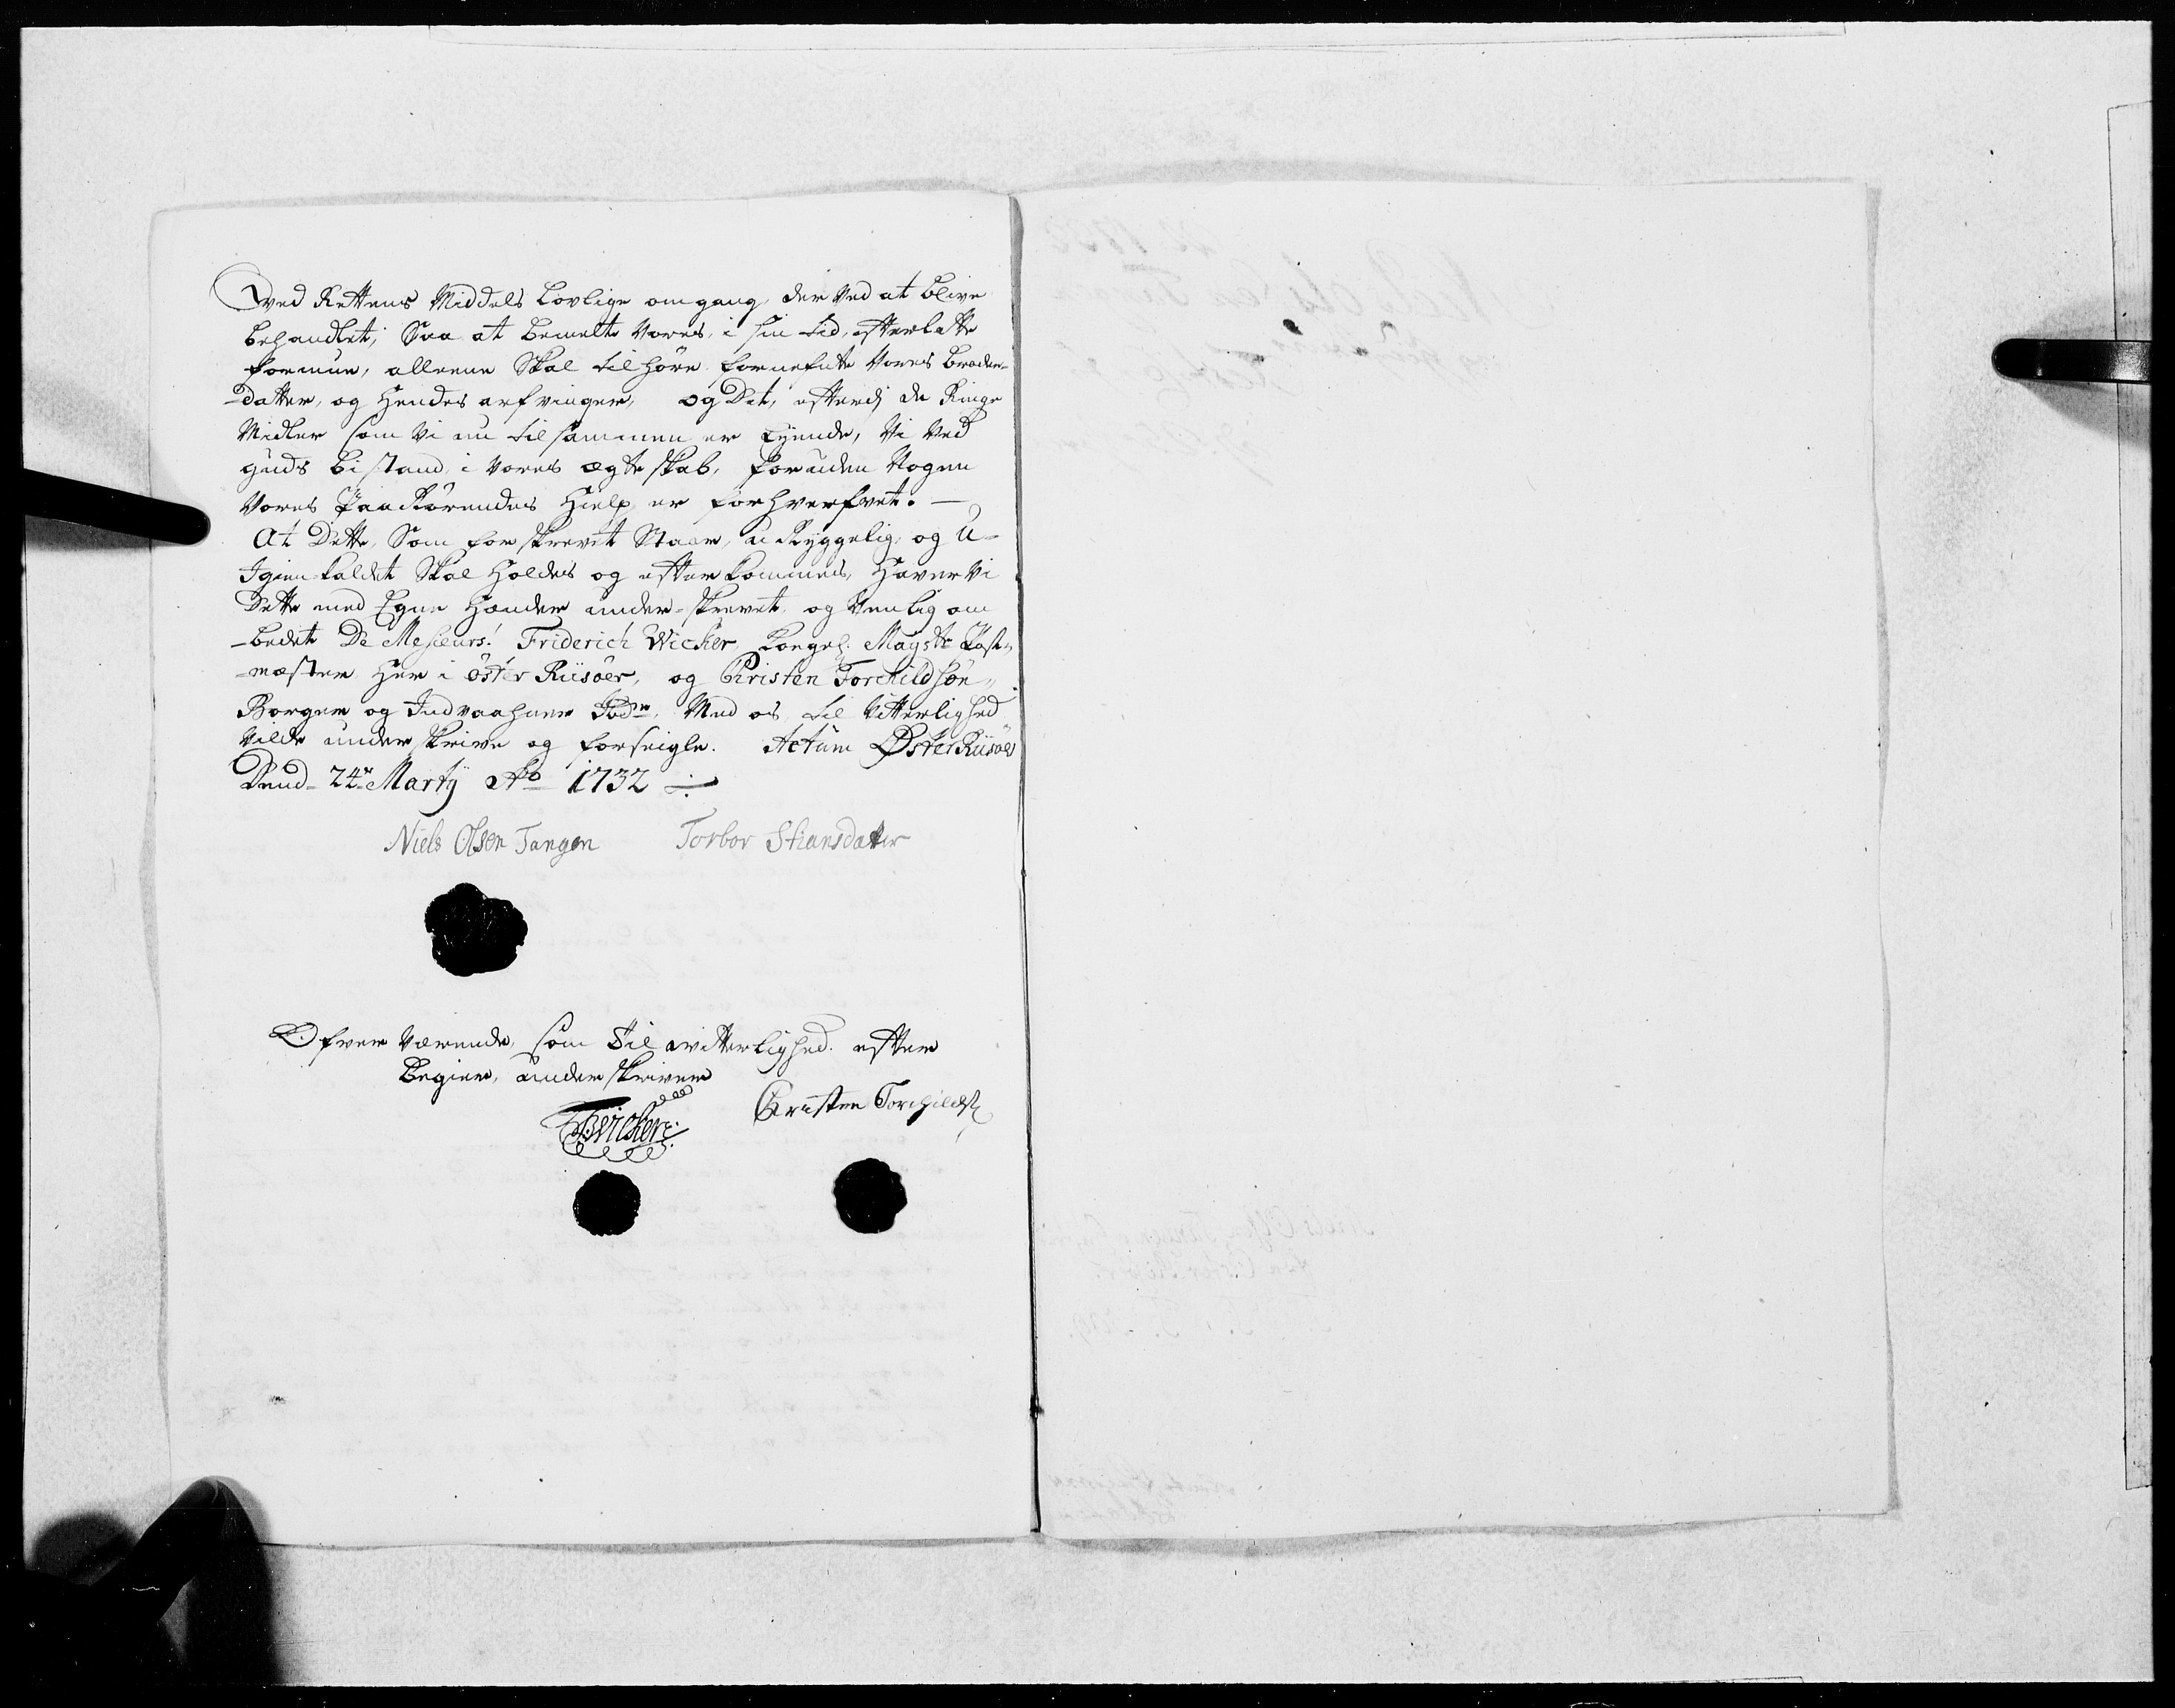 ved Rettens Middels Lovlige omgang, der ved at blive
behandlet; Saa at bemelte Vores, i sin tid, efterlatte
formue, alleene Skal tilhøre fornefnte Vores broder-
-datter, og Hendes arfvinger, og Det, efterdj de Ringe
Midler som Vi nu tilsammen er Eyende, Vi Ved
guds bistand, i Vores ægteskab, foruden Nogen
Vores Paarørendes Hielp, er forhverfvet. —
At Dette, Som forskrevet Staar, u Ryggelig, og U-
Igien-kaldet Skal Holdes og efterkommes, Haver Vi
Dette med Egne Hænder under-skrevet, og Venlig om
-bedet De Mesieurs: Friderich Wicker, Kongel: Maystts Post-
-mæster Her i öster Riisöer, og Christen Torchildsön
Borger og Indvaahner Ibdm, Med os, til Vitterlighed
Vilde underskrive og forseigle. Actum Øster Riisöer
Dend 24de Martij Ao 1732
Niels Olsen Tangen Torbor Stiansdatter
Ofver værende, som Til vitterlighed efter
Begier, underskriver
FWicker Christen Torchilds